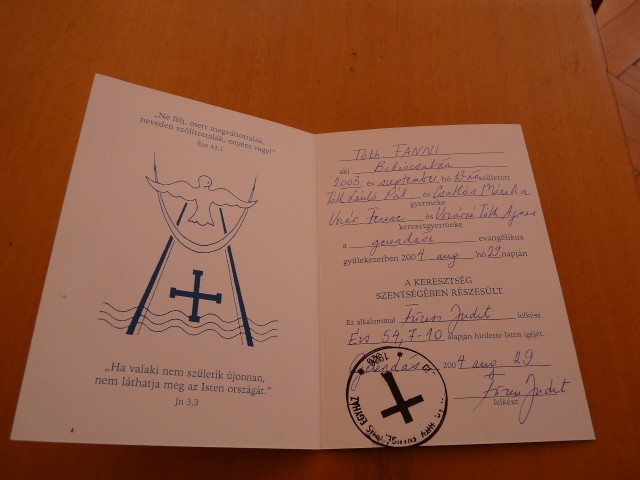 „Ne félj, mert megváltottalak,
neveden szólítottalak, enyém vagy!"
Ézs 43,1
„Ha valaki nem születik újonnan,
nem láthatja meg az Isten országát."
Jn 3,3
Tóth FANNI
aki Békéscsabán
2003 év szeptember hó született
Tóth László Pál és Csatlós Mónika
gyermeke
Vozár Ferenc és Vozárné Tóth Ágnes
keresztgyermeke
a gerendási evangélikus
gyülekezetben 2004 aug hó 29 napján
A KERESZTSÉG
SZENTSÉGÉBEN RÉSZESÜLT.
Ez alkalommal Judit lelkész
Ézs 54,7-10 alapján hirdette Isten igéjét.
Gerendás, 2004 aug. 29
Judit
lelkész
EGYHÁZ